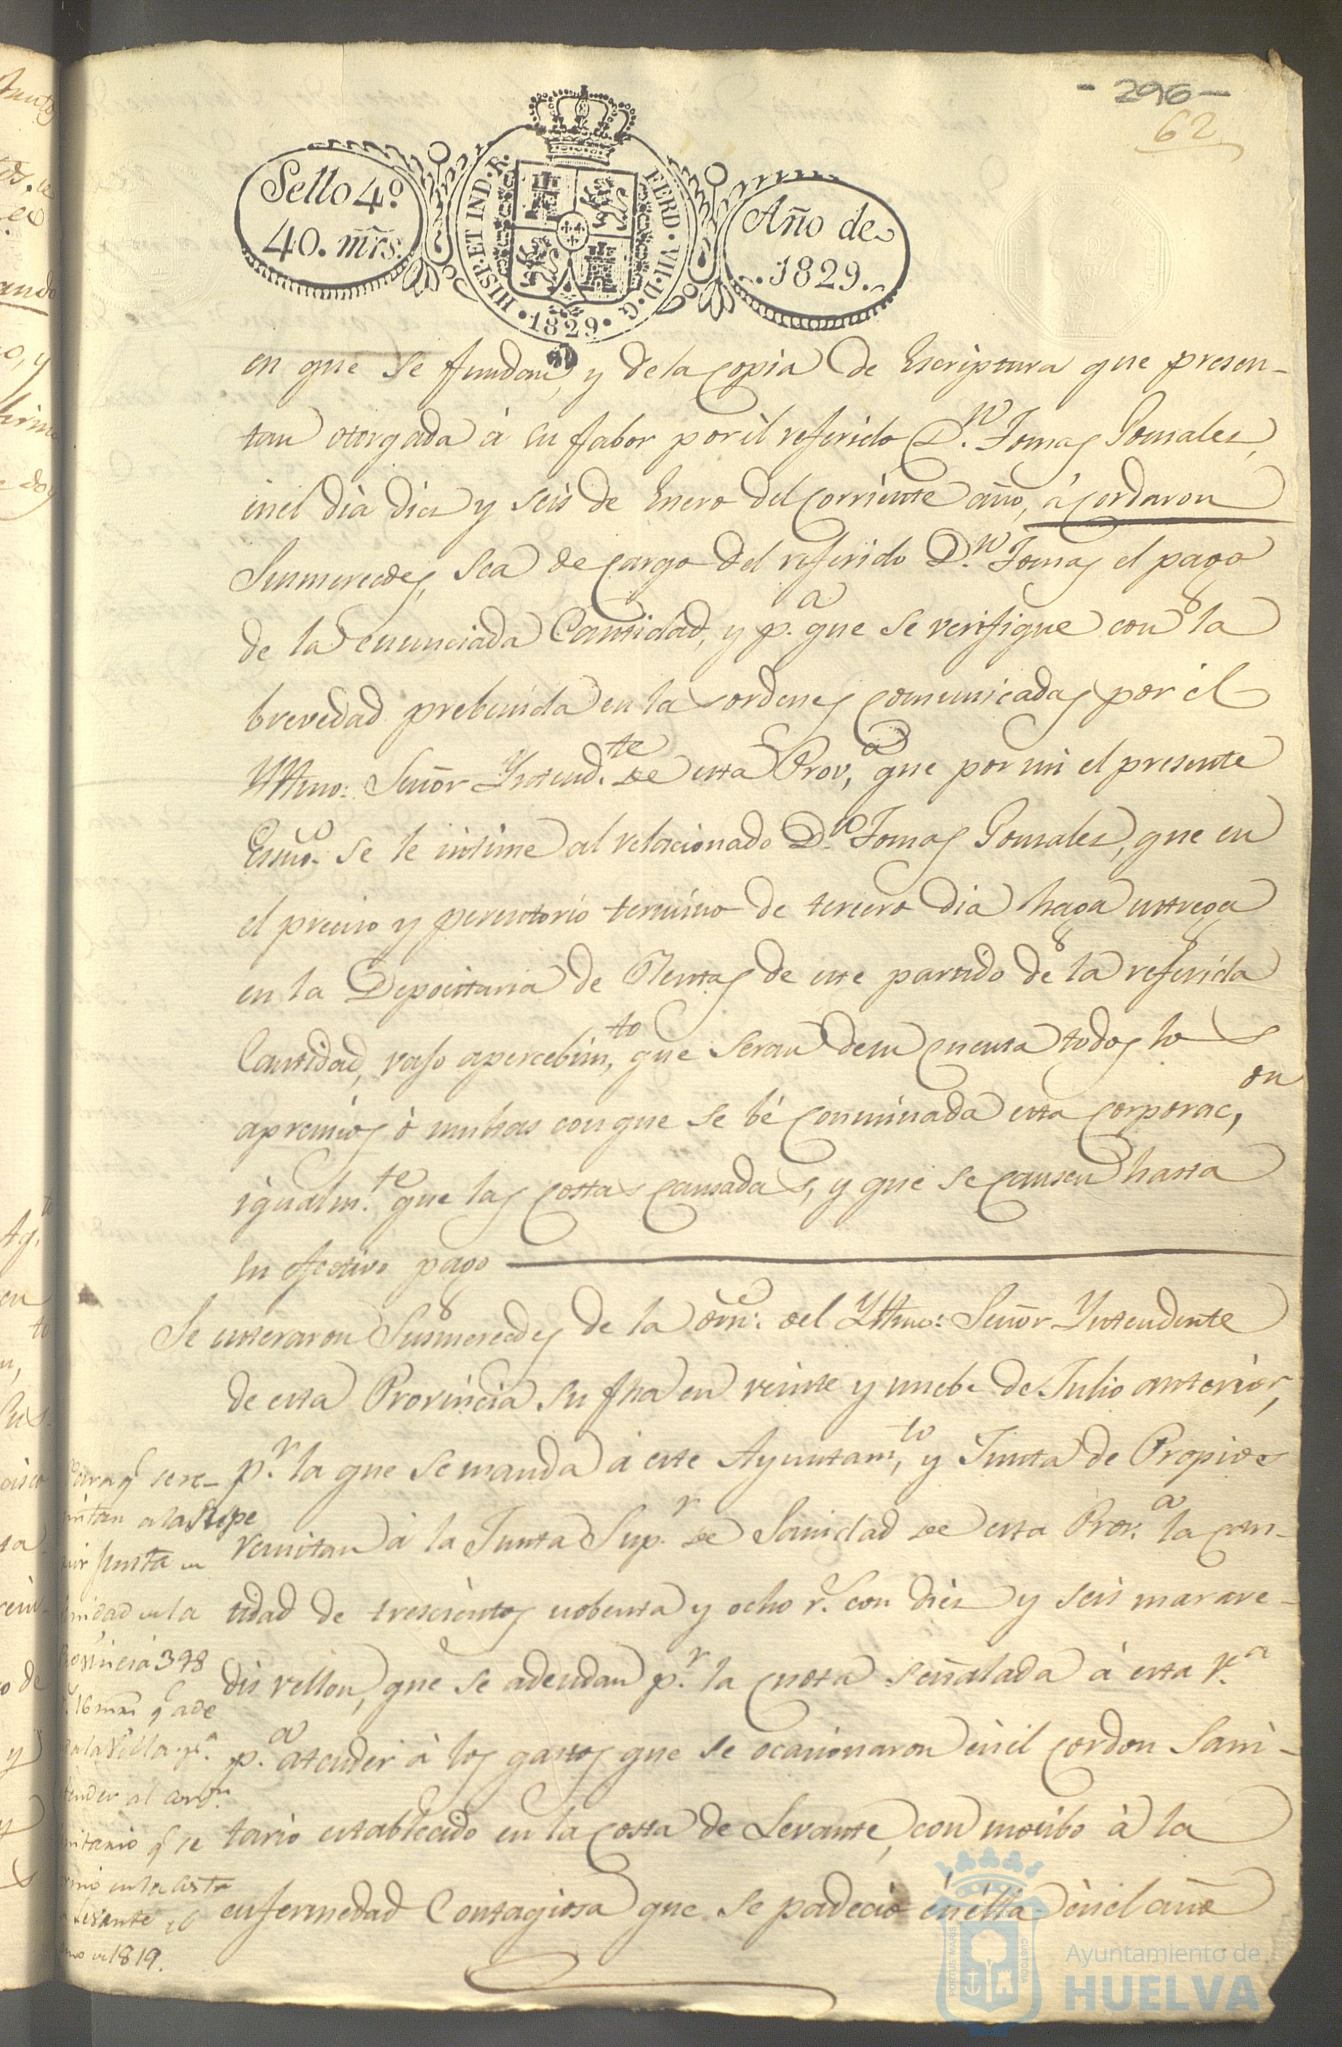 - 296 -
62
Sello 4º
40. mrs.
HISP. ET IND. R.
FERD. VII. D. G.
1829
Año de
1829.
en que se fundan, y de la copia de Escriptura que presen-
tan otorgada á su fabor por el referido D.n Tomas Gonzales,
en el dia diez y seis de Enero del corriente año, acordaron
Susmercedes, sea de cargo del referido D.n Tomas el pago
de la enunciada Cantidad, y p.a que se verifique con la
brevedad prebenida en las ordenes comunicadas por el
Yltmo: Señor Yntend.te de esta Prov,a que por mi el presente
Essno. se le intime al relacionado D.n Tomas Gonzales, que en
el preciso y perentorio termino de tercero dia haga entrega
en la Depocitaria de Rentas de este partido de la referida
Cantidad, vajo apercebim,to que seran de su cuenta todos los
apremios ó multas con que se bé conminada esta corporac,on
igualm.te que las costas causadas, y que se causen hasta
su efectivo pago
Se enteraron Susmercedes de la orn: del Yltmo: Señor Yntendente
de esta Provincia su fha en veinte y nuebe de Julio anterior,
p.r la que se manda á este Ayuntam,to y Junta de Propios
remitan á la Junta Sup.r de Sanidad de esta Prov.a la can-
tidad de trescientos nobenta y ocho r.s con diez y seis marave-
dis vellon, que se adeudan p.r la cuota señalada á esta V.a
p.a atender á los gastos que se ocacionaron en el cordon Sani-
tario establecido en la costa de Levante, con motibo á la
enfermedad Contagiosa que se padeció en élla en el año
Para q.e se re-
mitan a la Supe
rior Junta de
Sanidad de la
Provincia 398
r.s 16 mrs q.e ade
da la Villa p.a
atender al cordn.
Sanitario q.e se
formó en la costa
de Levante el
año de 1819.
Ayuntamiento de
HUELVA